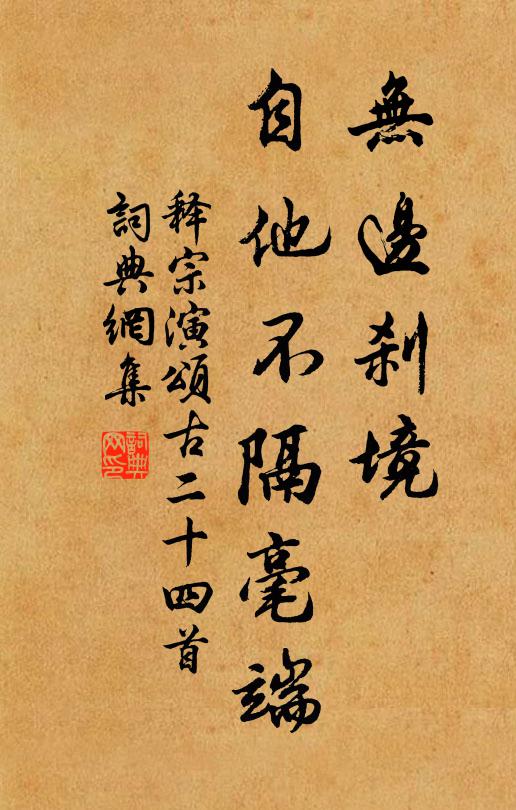 無邊刹境
自他不隔毫端
释宗演頌古二十四首
詞典網集
詞典网印